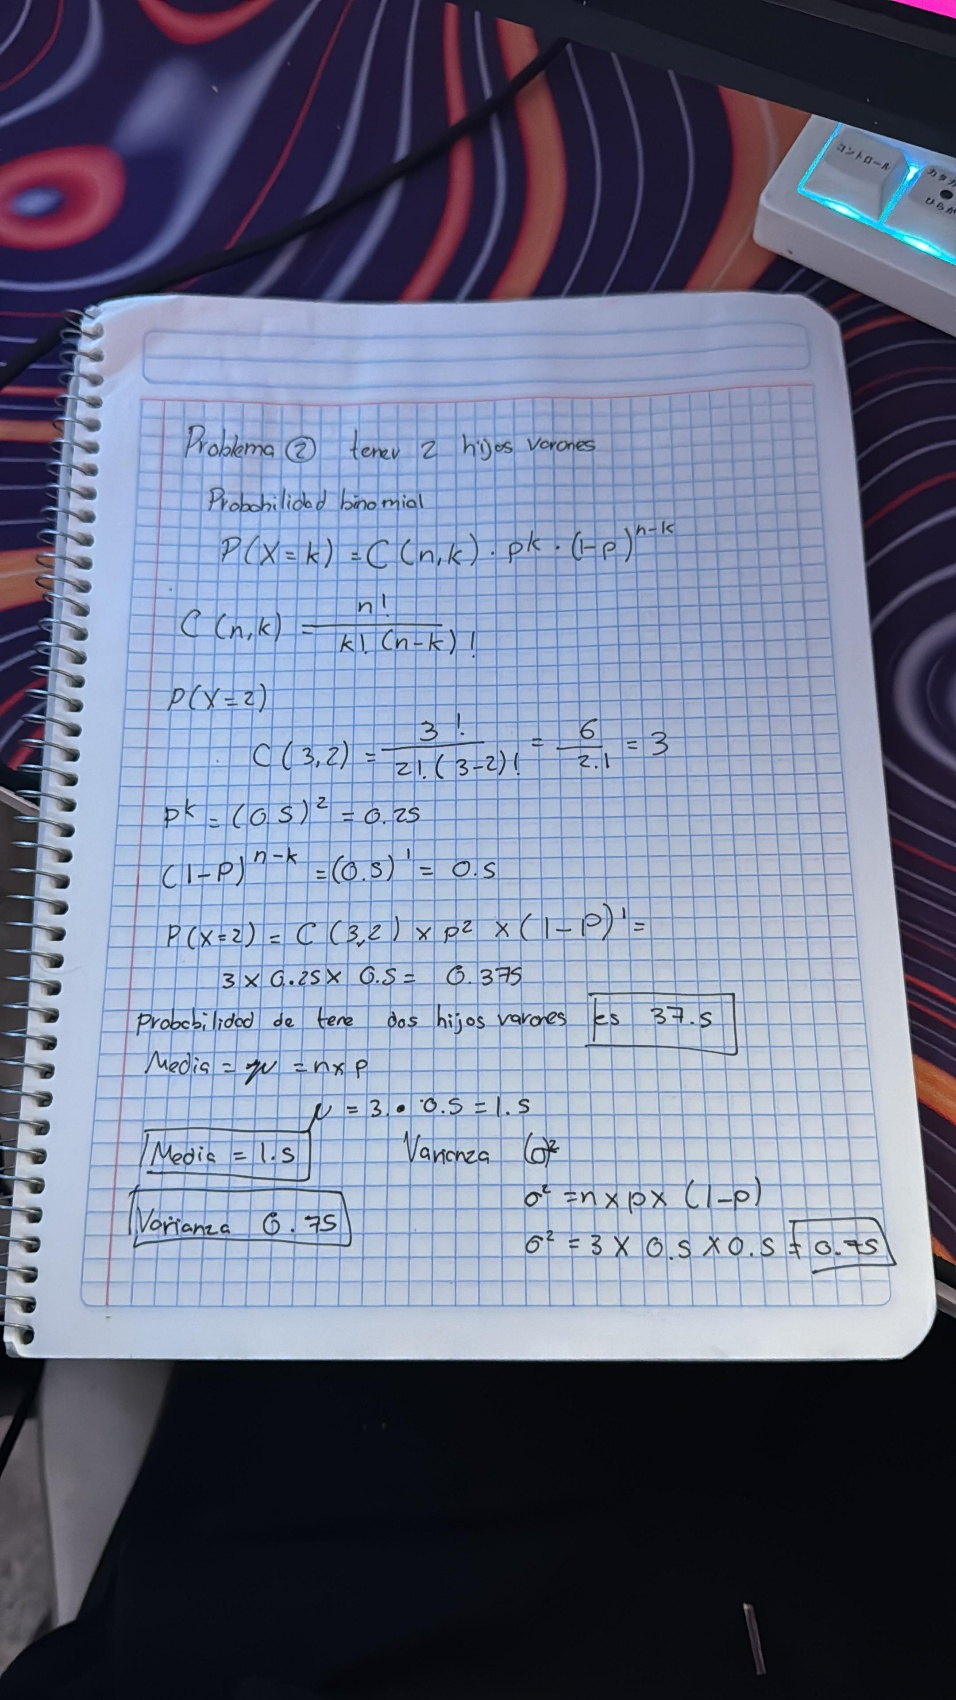 コントロール
カタカ
ひらが
Problema ② tener 2 hijos varones
Probabilidad binomial
P(X=k) = C(n,k) · pk · (1-p)^n-k
C(n,k) = n! / k! (n-k)!
P(X=2)
C(3,2) = 3! / 2!(3-2)! = 6 / 2.1 = 3
pk = (0.5)² = 0.25
(1-P)^n-k = (0.5)¹ = 0.5
P(X=2) = C(3,2) x p² x (1-p)¹ =
3 x 0.25 x 0.5 = 0.375
Probabilidad de tene dos hijos varones es 37.5
Media = μ = n x p
μ = 3 • 0.5 = 1.5
Media = 1.5
Varianza (σ)²
σ² = n x p x (1-p)
Varianza 0.75
σ² = 3 x 0.5 x 0.5 = 0.75